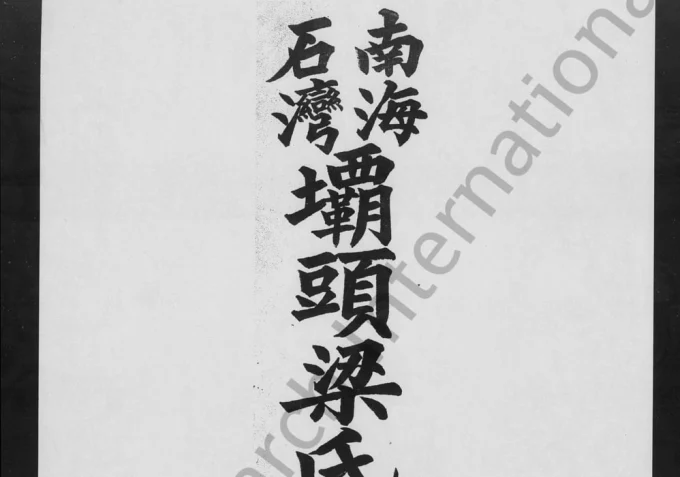 南海
石灣
壩頭梁氏
arch International